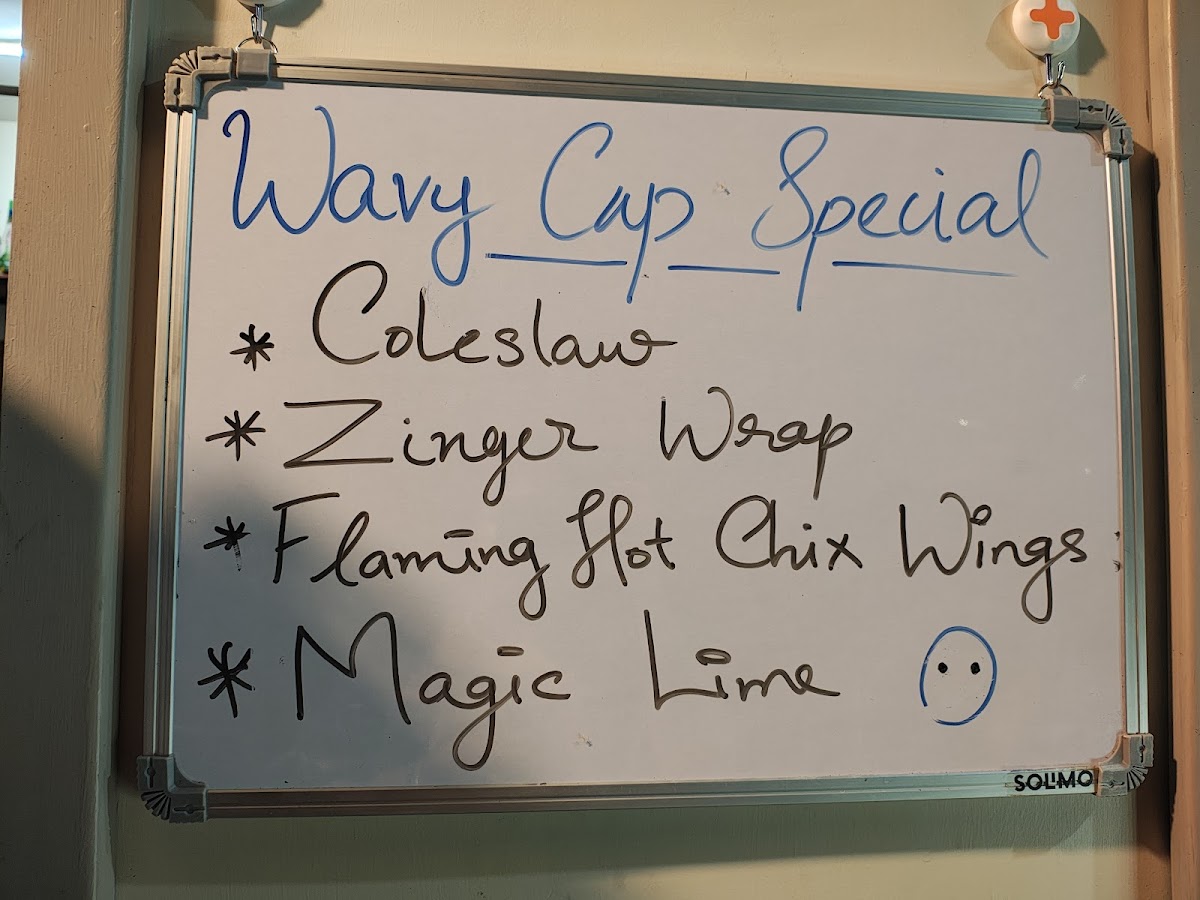 Wavy Cap Special
* Coleslaw
* Zinger Wrap
* Flaming Hot Chix Wings
* Magic Lime
SOLIMO